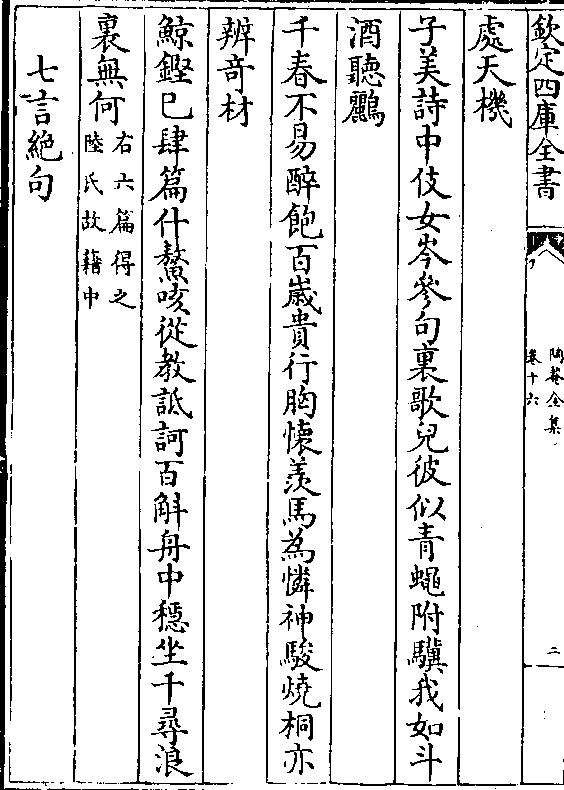 欽定四庫全書
陶菴全集
卷十六
二
處天機
子美詩中伎女岑參句裏歌兒彼似青蠅附驥我如斗
酒聽鸝
千春不易醉飽百嵗貴行胸懷羨馬為憐神駿燒桐亦
辨竒材
鯨鏗已肆篇什鰲咳從教詆訶百斛舟中穩坐千尋浪
裏無何
右六篇得之
陸氏故藉中
七言絶句